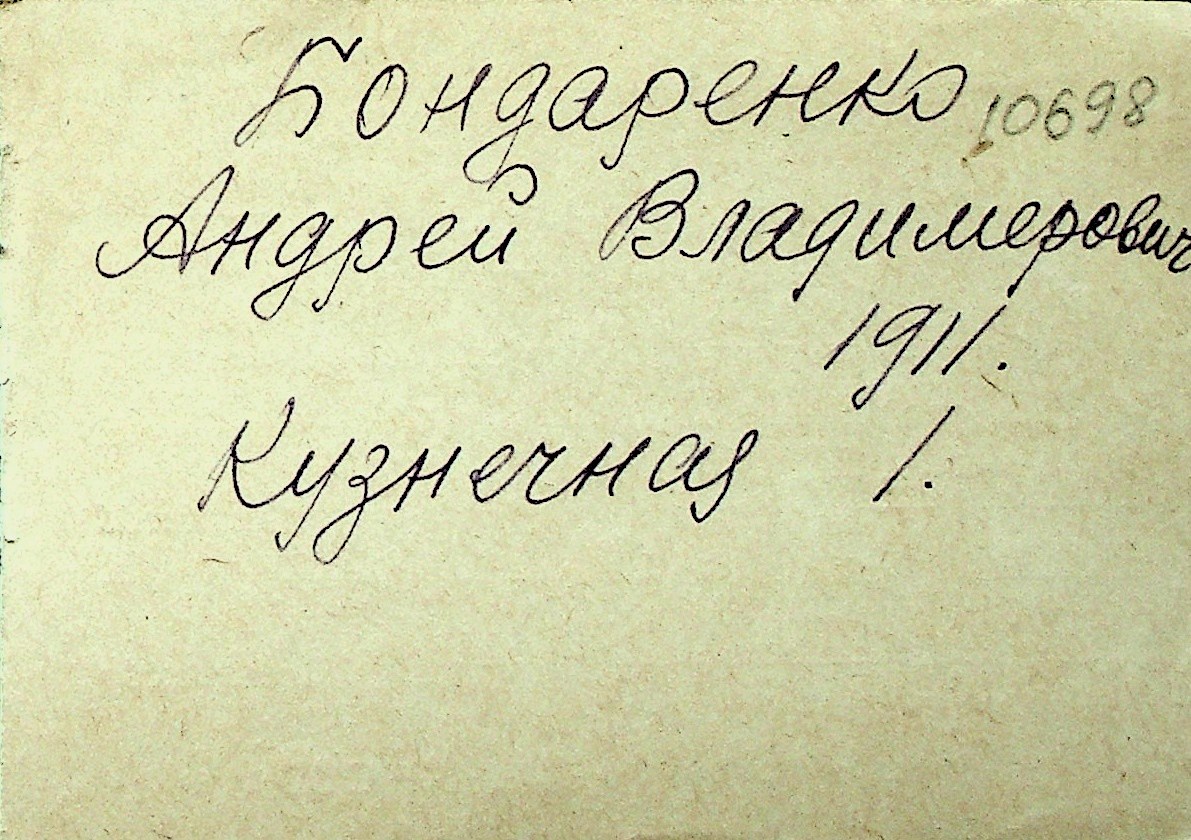 Бондаренко 10698
Андрей Владимерович
1911.
Кузнечная 1.